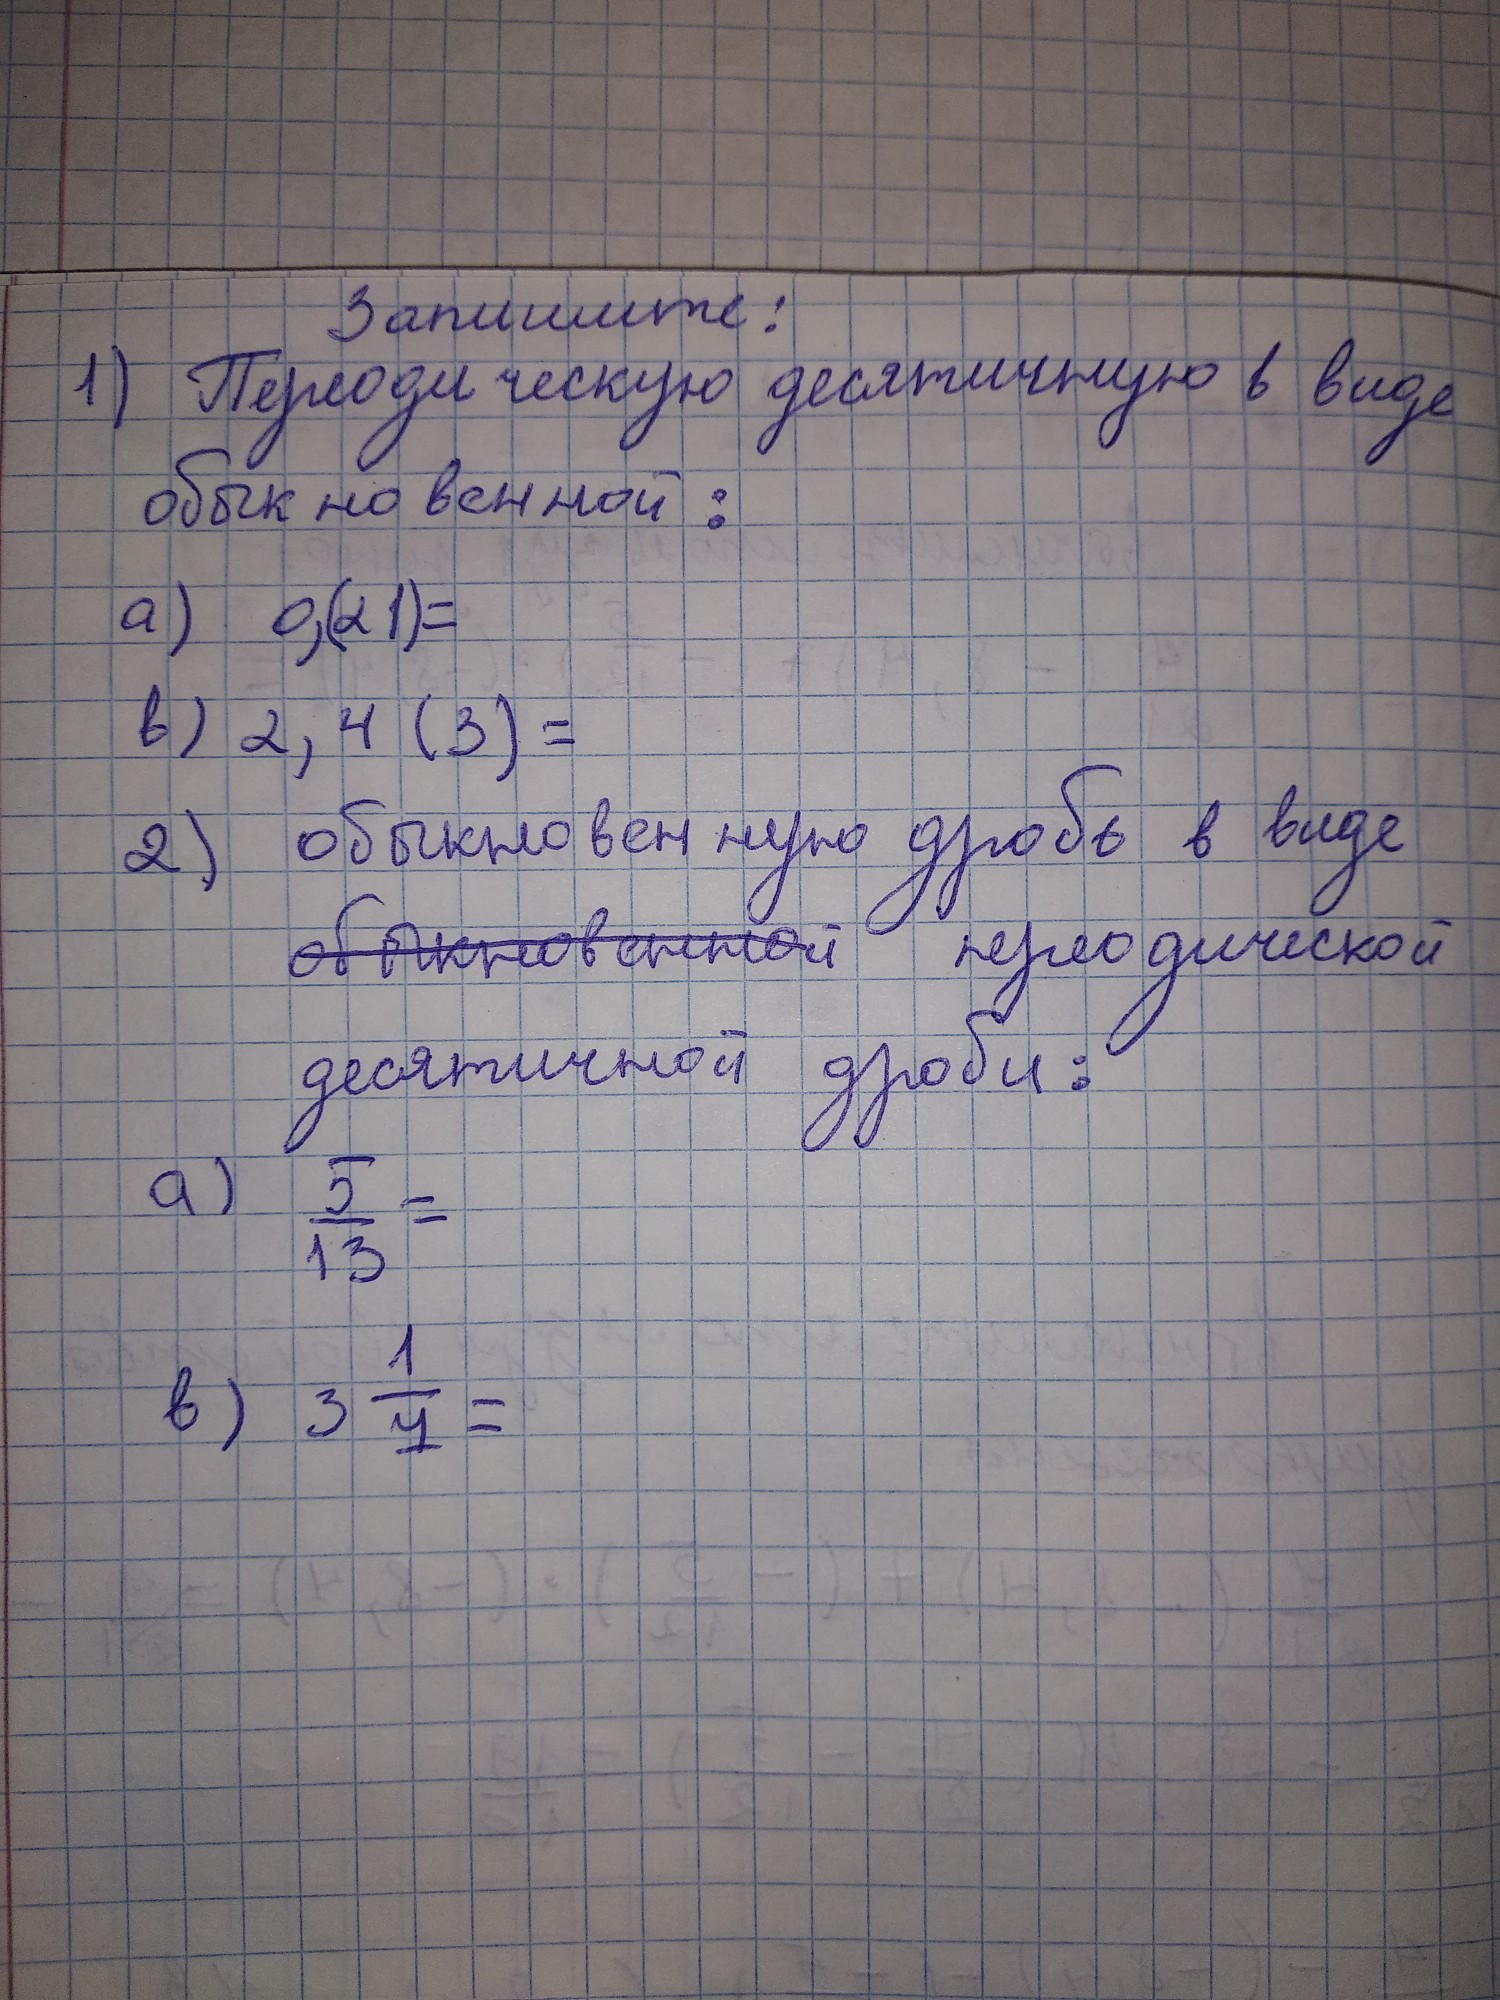 Запишите:
1) Периодическую десятичную в виде
обыкновенной:
а) 0,(21)=
в) 2,4(3)=
2) обыкновенную дробь в виде
обыкновенной периодической
десятичной дроби:
а) 5/13 =
в) 3 1/4 =